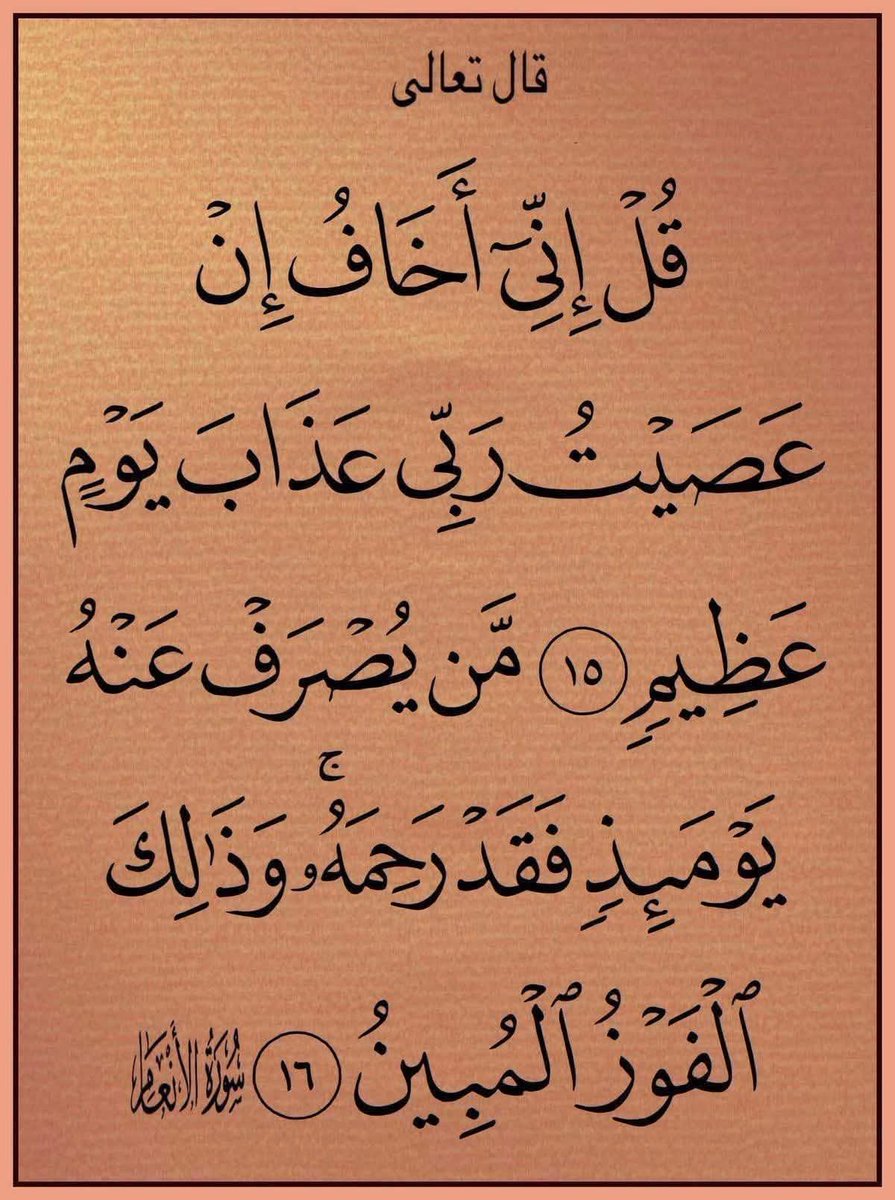 قال تعالى
قُلۡ إِنِّيٓ أَخَافُ إِنۡ
عَصَيۡتُ رَبِّي عَذَابَ يَوۡمٍ
عَظِيمٖ ١٥ مَّن يُصۡرَفۡ عَنۡهُ
يَوۡمَئِذٖ فَقَدۡ رَحِمَهُۥۚ وَذَٰلِكَ
ٱلۡفَوۡزُ ٱلۡمُبِينُ ١٦ سُورَةُ الأَنْعَام